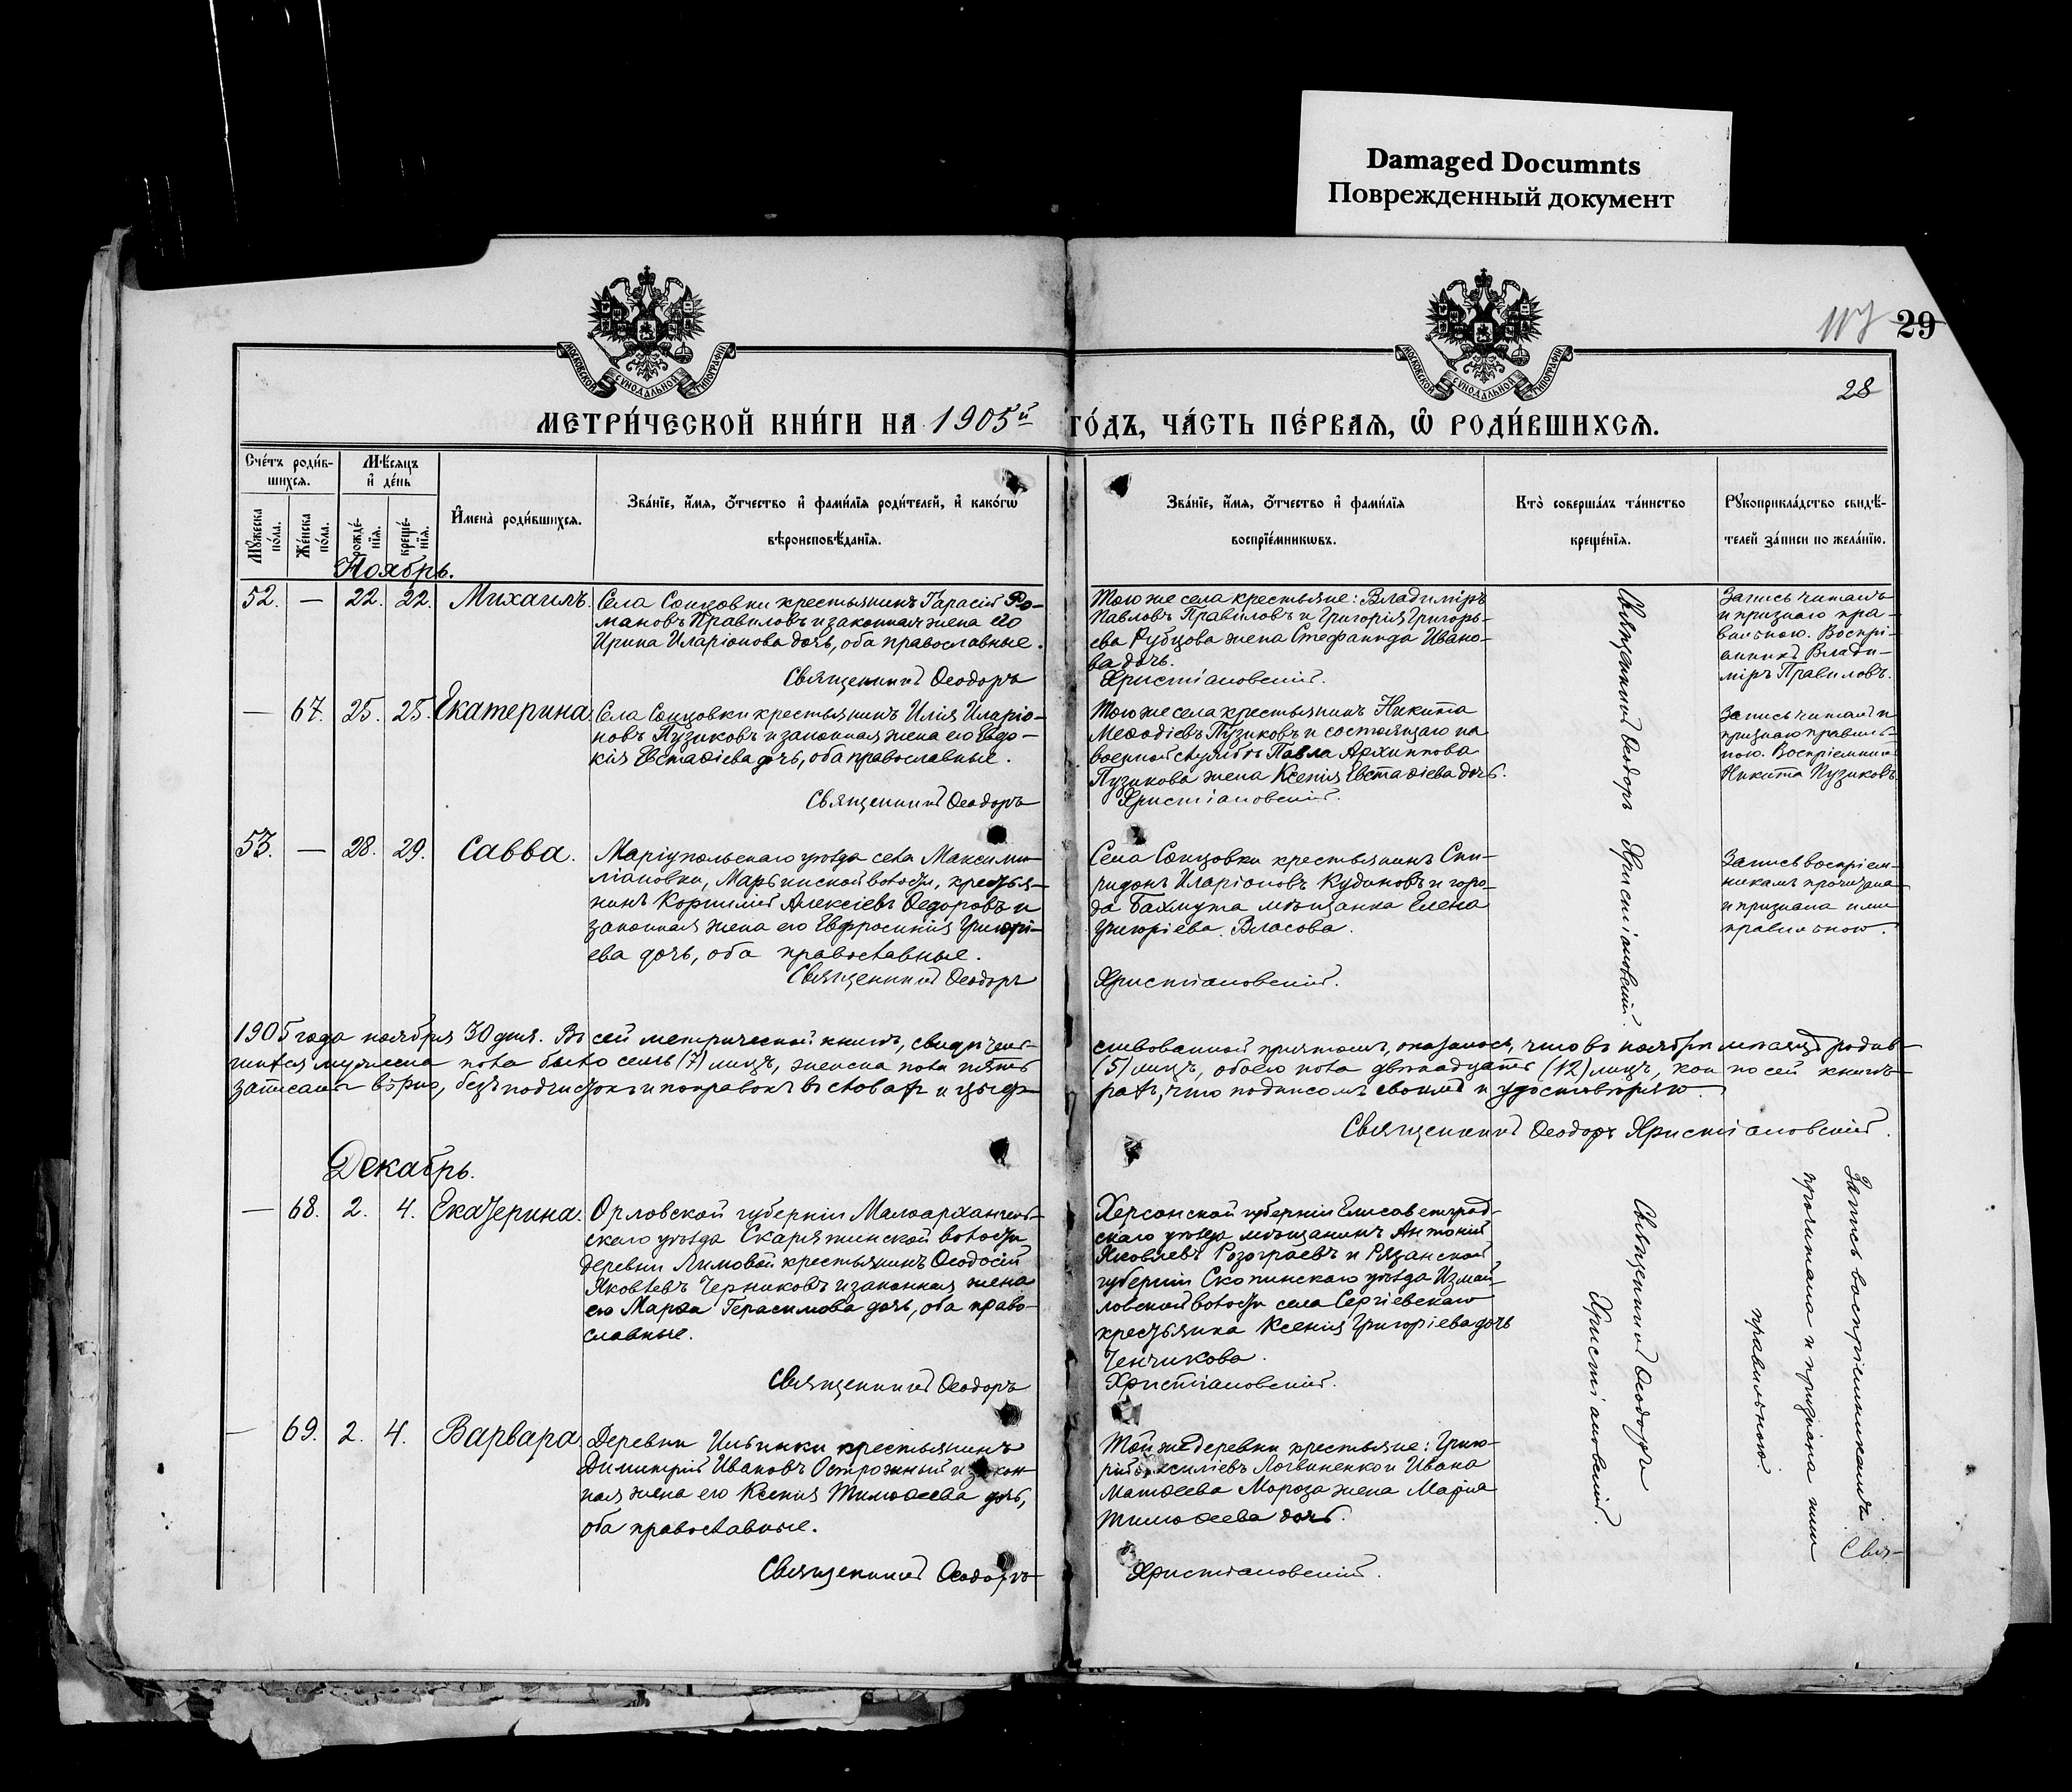 Damaged Documnts
Поврежденный документ
МОСКОВСКОЙ СѴНОДАЛЬНОЙ ТИПОГРАФІИ
МОСКОВСКОЙ СѴНОДАЛЬНОЙ ТИПОГРАФІИ
29
28
МЕТРИ́ЧЕСКОЙ КНИ́ГИ НА 1905й ГО́ДЪ, ЧА́СТЬ ПЕ́РВАѦ, Ѡ РОДИ́ВШИХСѦ.
Сче́тъ роди́в-
шихсѧ.
Мѣ́сѧцъ
и҆ де́нь
Мꙋ́жеска
по́ла.
Же́нска
по́ла.
рожде́-
нїѧ.
креще́-
нїѧ.
И҆мена̀ роди́вшихсѧ.
Зва́нїе, и҆́мѧ, ѻ҆́тчество и҆ фами́лїѧ роди́телей, и҆ како́гѡ
вѣроисповѣ́данїѧ.
Зва́нїе, и҆́мѧ, ѻ҆́тчество и҆ фами́лїѧ
воспрїе́мникѡвъ.
Кто̀ соверша́лъ та́инство
креще́нїѧ.
Рꙋкоприкла́дство свидѣ́-
телей за́писи по жела́нїю.
Ноябрь.
52. — 22. 22. Михаилъ.
Села Сонцовки крестьянинъ Гарасій Ро-
мановъ Правиловъ и законная жена его
Ирина Иларіонова дочь, оба православные.
Священникъ Ѳеодоръ
Тогоже села крестьяне: Владиміръ
Павловъ Правиловъ и Григорія Григорь-
ева Рубцова жена Стефанида Ивано-
ва дочь.
Христіановскій.
Священникъ Ѳеодоръ Христіановскій.
Запись читалъ
и признаю пра-
вильною. Воспрі-
емникъ Влади-
міръ Правиловъ.
— 67. 25. 25. Екатерина.
Села Сонцовки крестьянинъ Илія Иларіо-
новъ Пузиковъ и законная жена его Евдо-
кія Евстаѳіева дочь, оба православные.
Священникъ Ѳеодоръ
Тогоже села крестьянинъ Никита
Меѳодіевъ Пузиковъ и состоящаго на
военной службѣ Павла Архиппова
Пузикова жена Ксенія Евстаѳіева дочь.
Христіановскій.
Запись читалъ и
признаю правиль-
ною. Воспріемникъ
Никита Пузиковъ
53. — 28. 29. Савва.
Маріупольскаго уѣзда села Максими-
ліановки, Марьинской волости, крестья-
нинъ Корнилій Алексіевъ Ѳедоровъ и
законная жена его Евфросинія Григорі-
ева дочь, оба православные.
Священникъ Ѳеодоръ
Села Сонцовки крестьянинъ Спи-
ридонъ Иларіоновъ Кудиновъ и горо-
да Бахмута мѣщанка Елена
Григоріева Власова.
Христіановскій.
Запись воспріем-
никамъ прочитана
и признана ими
правильною.
1905 года ноября 30 дня. Въ сей метрической книгѣ, свидѣтель-
ствованной причтомъ, оказалось, что въ ноябрѣ мѣсяцѣ родив-
шихся мужеска пола было семь (7) лицъ, женска пола пять
(5) лицъ, обоего пола двѣнадцать (12) лицъ, кои по сей книгѣ
записаны вѣрно, безъ подчистокъ и поправокъ въ словахъ и цыф-
рахъ, что подписомъ своимъ и удостовѣряю.
Священникъ Ѳеодоръ Христіановскій.
Декабрь.
— 68. 2. 4. Екатерина.
Орловской губерніи Малоархангель-
скаго уѣзда Скарятинской волости
деревни Лимовой крестьянинъ Ѳеодосій
Яковлевъ Черниковъ и законная жена
его Марѳа Герасимова дочь, оба право-
славные.
Священникъ Ѳеодоръ
Херсонской губерніи Елисаветград-
скаго уѣзда мѣщанинъ Антоній
Яковлевъ Розограевъ и Рязанской
губерніи Скопинскаго уѣзда Измай-
ловской волости села Сергіевскаго
крестьянка Ксенія Григоріева дочь
Ченчикова.
Христіановскій.
Священникъ Ѳеодоръ
Христіановскій.
Запись воспріемниками
прочитана и признана ими
правильною.
Свя-
— 69. 2. 4. Варвара
Деревни Ильинки крестьянинъ
Димитрій Ивановъ Острожный и закон-
ная жена его Ксенія Тимоѳеева дочь,
оба православные.
Священникъ Ѳеодоръ
Той же деревни крестьяне: Григо-
рій Василіевъ Логвиненко и Ивана
Матѳеева Мороза жена Марія
Тимоѳеева дочь.
Христіановскій.